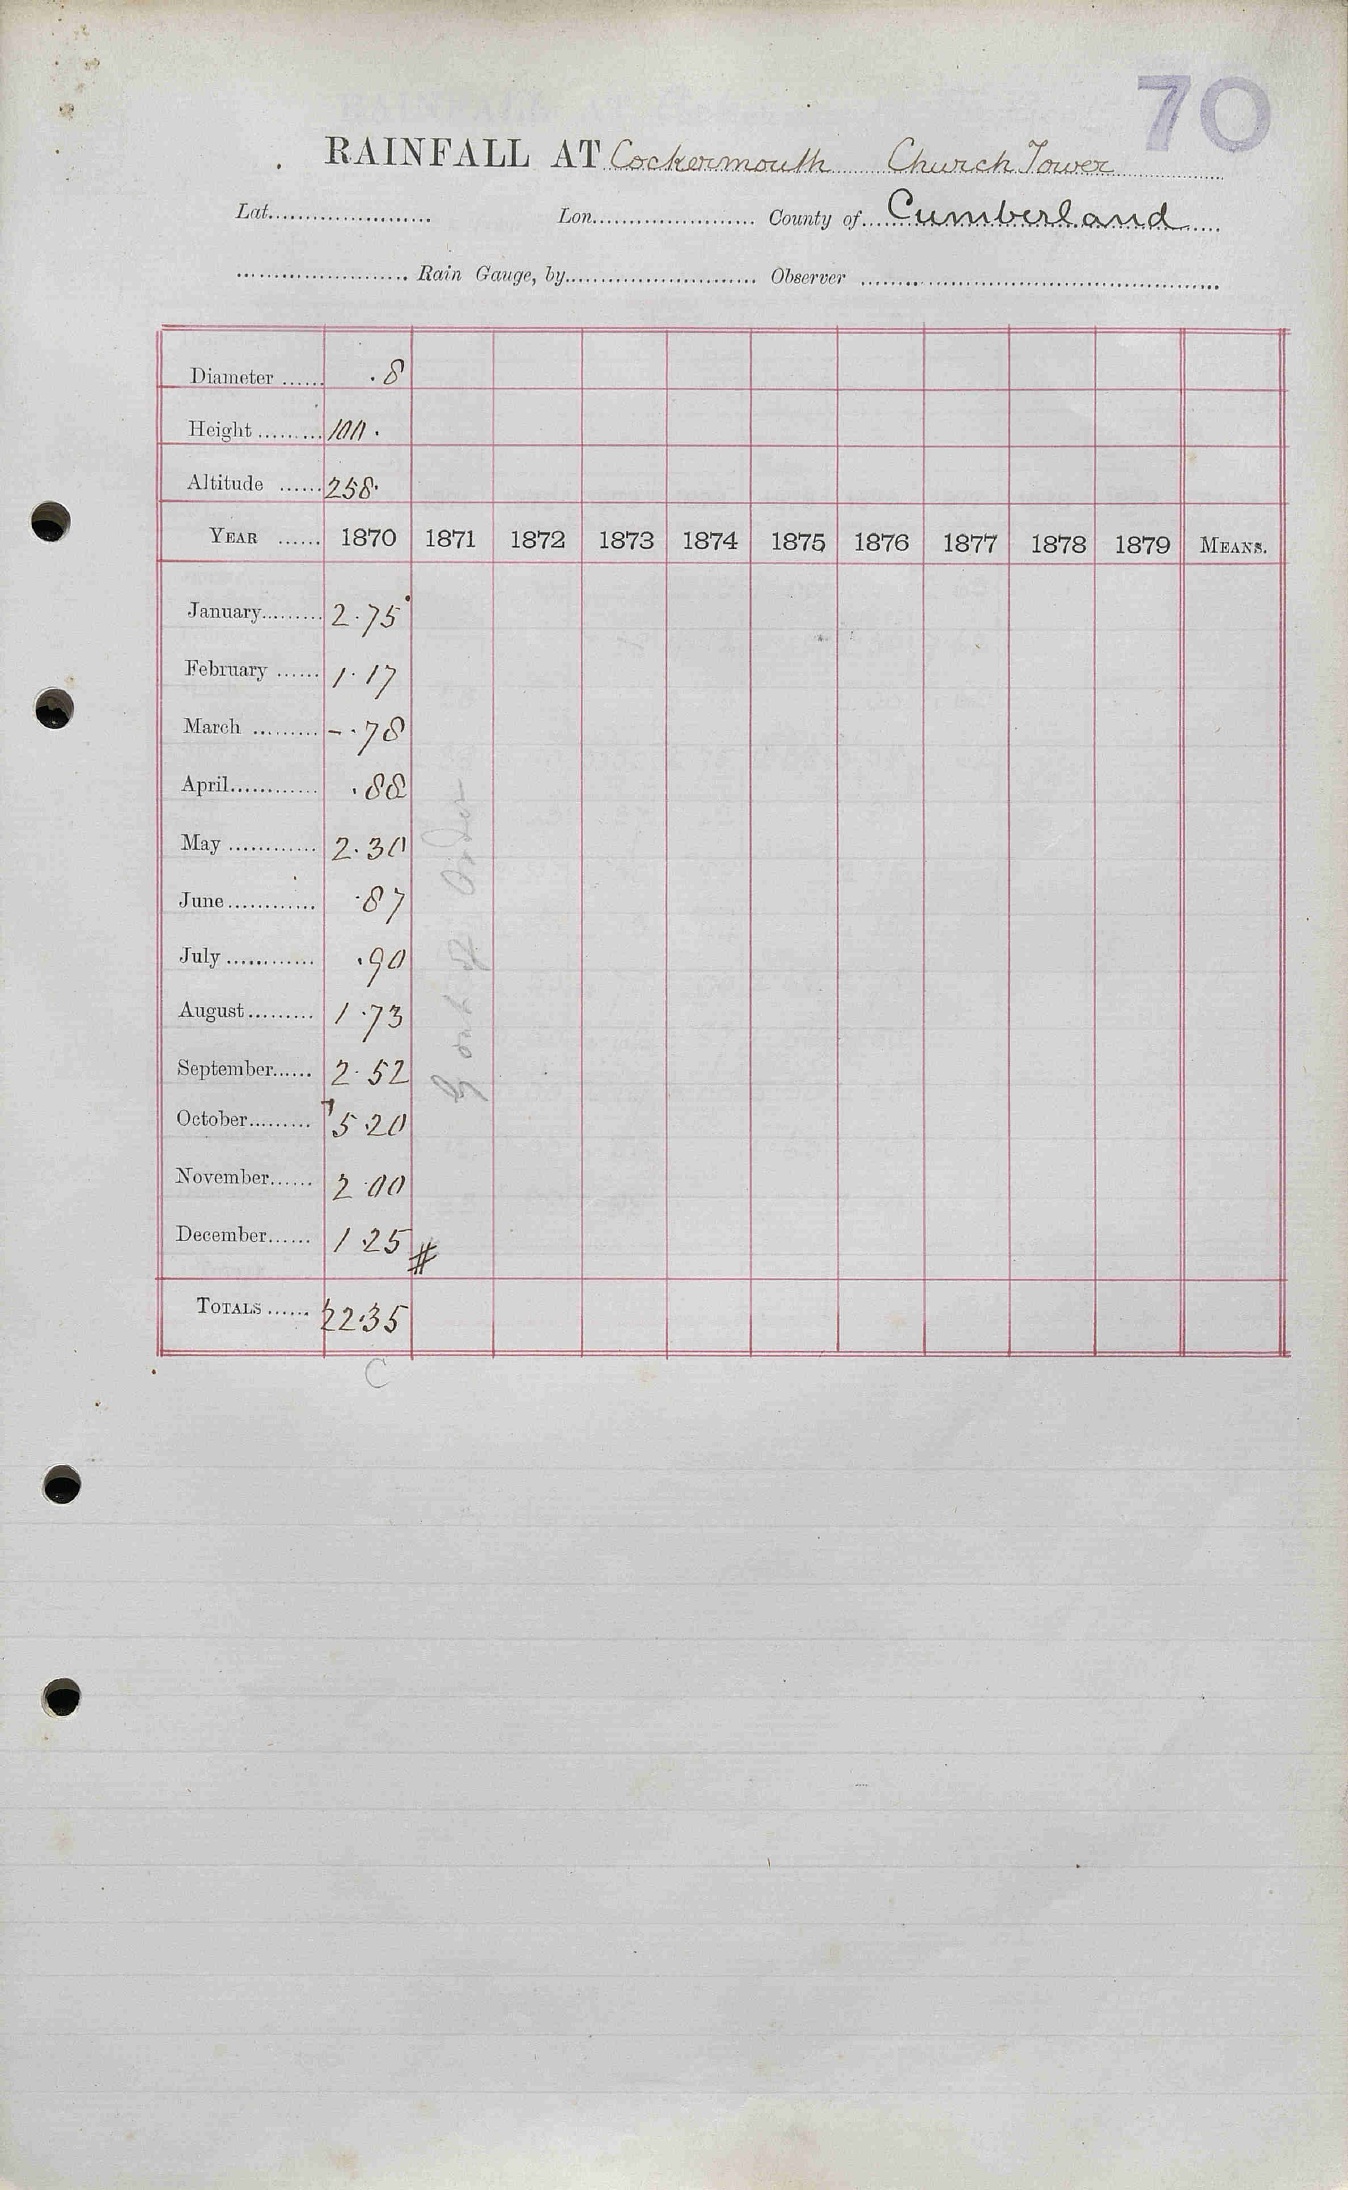 70
RAINFALL AT Cockermouth Church Tower
Lat. Lon. County of Cumberland
Rain Gauge, by Observer
Diameter .8
Height 100.
Altitude 258.
YEAR 1870 1871 1872 1873 1874 1875 1876 1877 1878 1879 MEANS.
January 2.75
February 1.17
March -.78
April .88
May 2.30
June .87
July .90
August 1.73
September 2.52
October 5.20
November 2.00
December 1.25 #
TOTALS 22.35
C
G out of Order